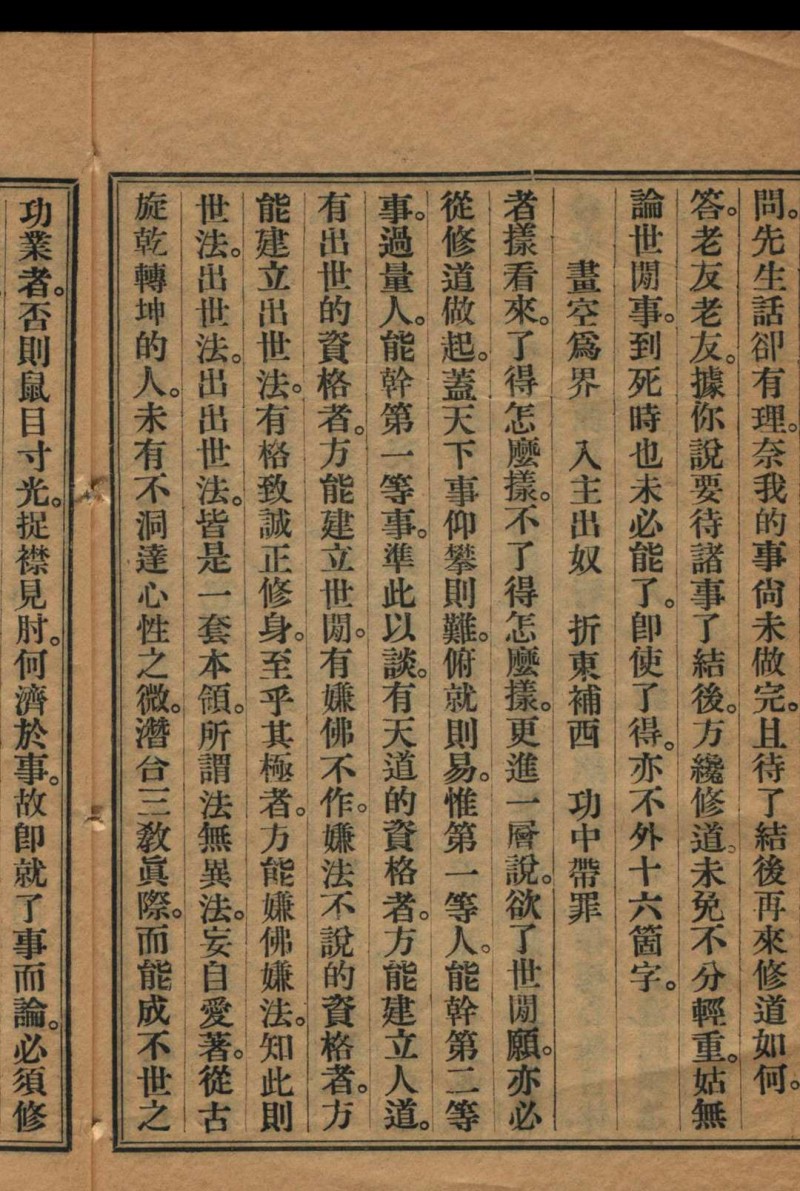 問。先生話卻有理。奈我的事尙未做完。且待了結後再來修道如何。
答。老友老友。據你說要待諸事了結後。方纔修道。未免不分輕重。姑無
論世閒事。到死時也未必能了。卽使了得。亦不外十六箇字。
畫空爲界　入主出奴　折東補西　功中帶罪
者樣看來。了得怎麼樣。不了得怎麼樣。更進一層說。欲了世閒願。亦必
從修道做起。蓋天下事仰攀則難。俯就則易。惟第一等人。能幹第二等
事。過量人。能幹第一等事。準此以談。有天道的資格者。方能建立人道。
有出世的資格者。方能建立世閒。有嫌佛不作。嫌法不說的資格者。方
能建立出世法。有格致誠正修身。至乎其極者。方能嫌佛嫌法。知此則
世法。出世法。出出世法。皆是一套本領。所謂法無異法。妄自愛著。從古
旋乾轉坤的人。未有不洞達心性之微。潛合三敎眞際。而能成不世之
功業者。否則鼠目寸光。捉襟見肘。何濟於事。故卽就了事而論。必須修